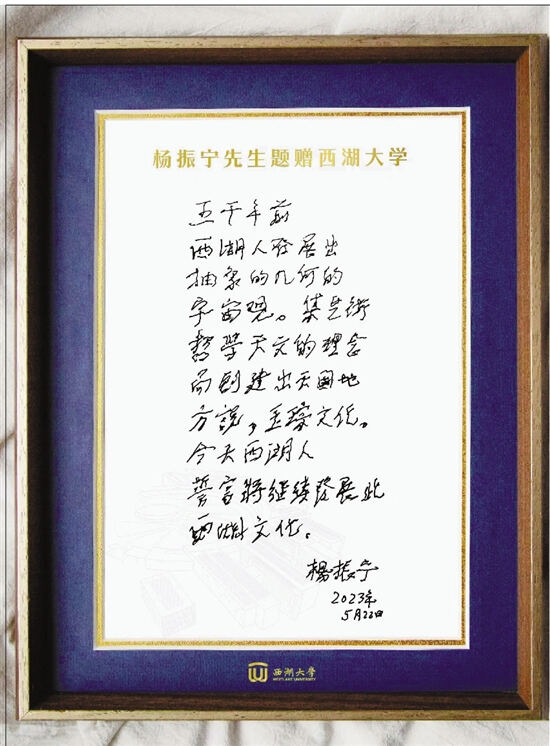 杨振宁先生题赠西湖大学
五千年前
西湖人發展出
抽象的几何的
宇宙观。集術
數學天文的理念
而創建出天圓地
方說，玉琮文化。
今天西湖人
誓將继续發展此
西湖文化。
楊振宁
2023年
5月22日
西湖大學
WESTLAKE UNIVERSITY